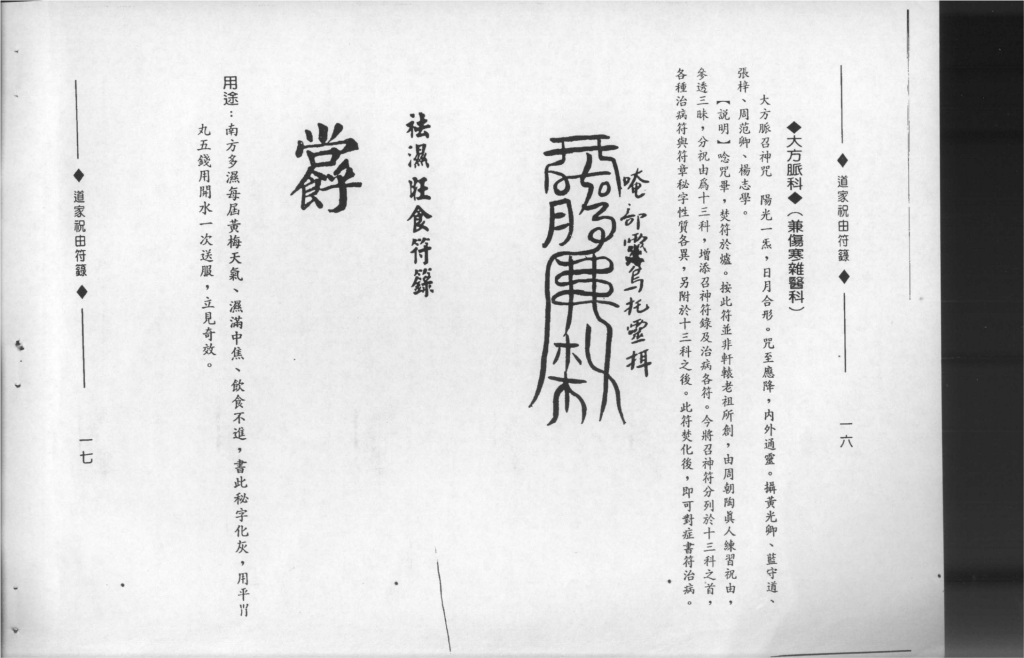 ◆道家祝由符籙◆
一六
◆大方脈科◆(兼傷寒雜醫科)
大方脈召神咒 陽光一炁,日月合形。咒至應降,內外通靈。攝黃光卿、藍守道、
張梓、周范卿、楊志學。
【說明】唸咒畢,焚符於爐。按此符並非軒轅老祖所創,由周朝陶眞人練習祝由,
參透三昧,分祝由爲十三科,增添召神符籙及治病各符。今將召神符分列於十三科之首,
各種治病符與符章秘字性質各異,另附於十三科之後。此符焚化後,即可對症書符治病。
唵部
烏托靈
祛濕旺食符籙
用途:南方多濕每屆黃梅天氣、濕滿中焦、飲食不進,書此秘字化灰,用平胃
丸五錢用開水一次送服,立見奇效。
◆道家祝由符籙◆
一七